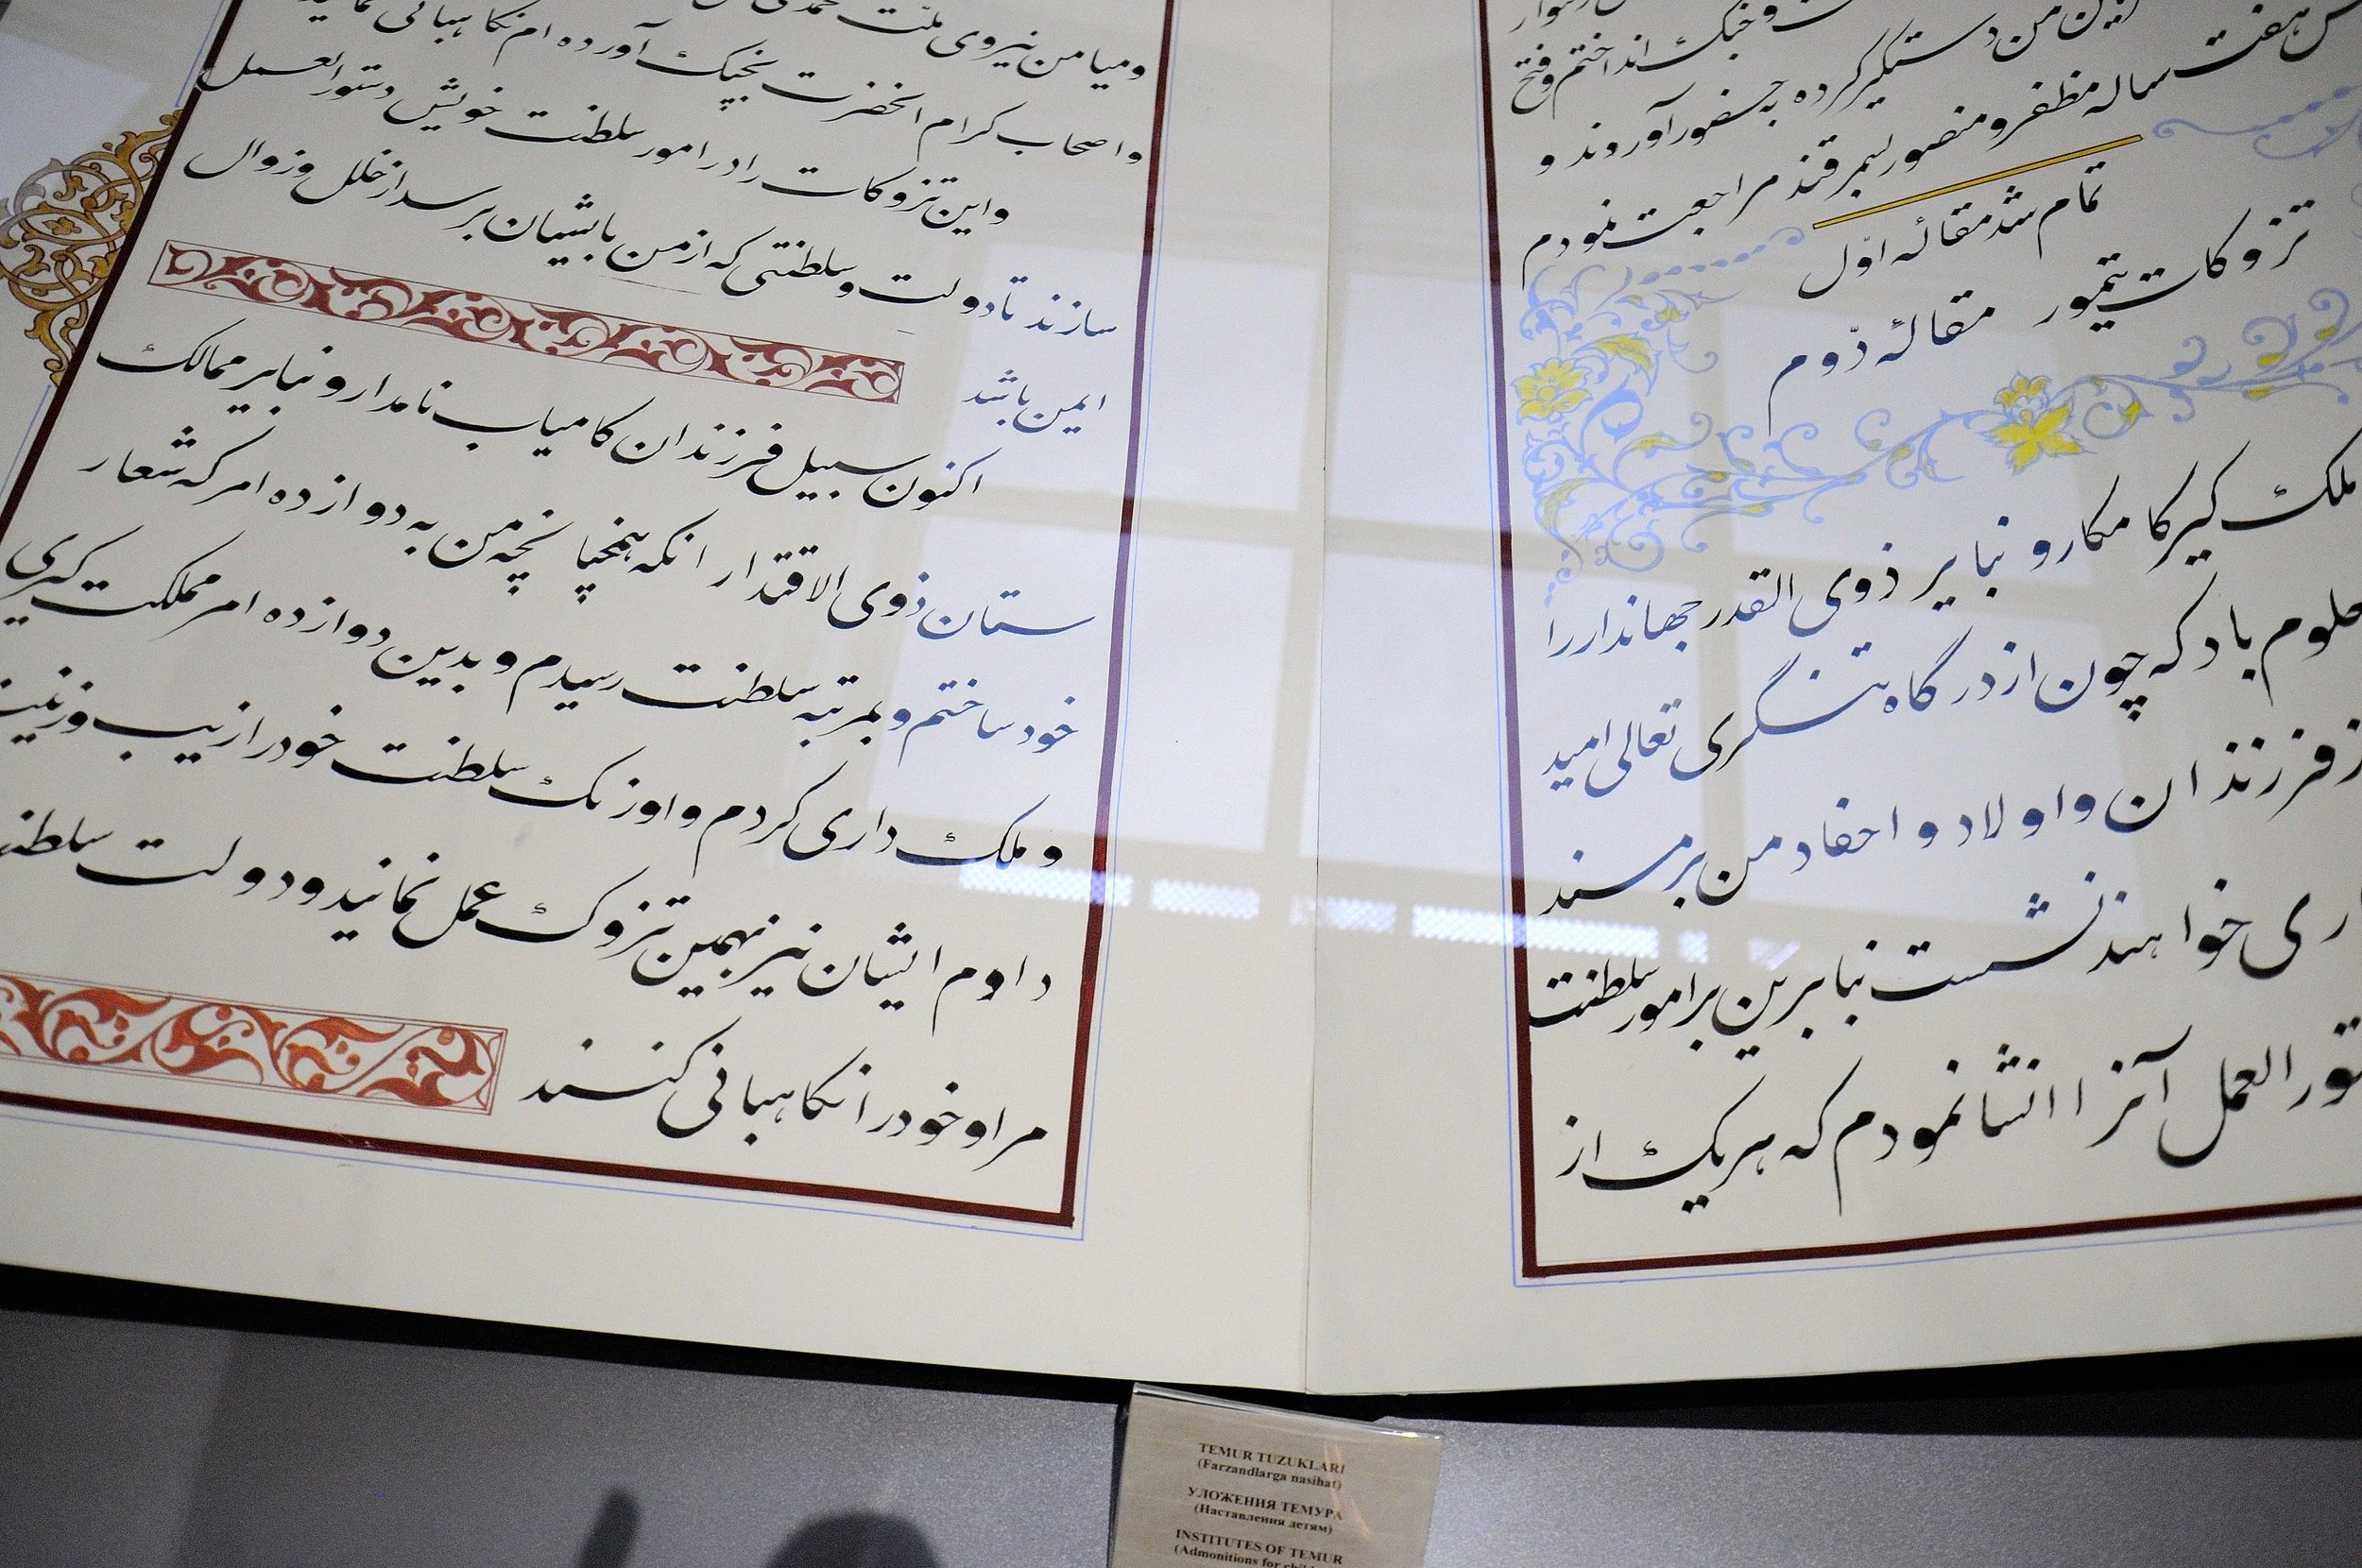 اندین من دستگیر کرده بحضور آوردند و
هفت ساله مظفر و منصور بسمرقند مراجعت نمودم
تمام شد مقاله اوّل
تزوکات تیمور مقالهٔ دوّم
ملک گیر کامکار و نبایر ذوی القدر جهاندار را
باد که چون از درگاه تنگری تعالی امید
فرزندان و اولاد و احفاد من بر مسند
خواهند نشست بنابرین بر امور سلطنت
العمل آنرا انشا نمودم که هر یک از
و میامن نیروی ملت
و اصحاب کرام انحضرت بجنک آورده ام نکاهبانی
و این تزوکات را در امور سلطنت خویش دستور العمل
سازند تا دولت و سلطنتی که از من بایشان برسد از خلل و زوال
ایمن باشد
اکنون سبیل فرزندان کامیاب نامدار و نبایر ممالک
ستان ذوی الاقتدار انکه همچنانچه من به دوازده امر که شعار
خود ساختم و بمرتبه سلطنت رسیدم و بدین دوازده امر مملکت گیری
و ملک داری کردم و اوزنک سلطنت خود را زیب و زینت
دادم ایشان نیز بهمین تزوک عمل نمانید و دولت سلطنت
مرا و خود را نکاهبانی کنند
TEMUR TUZUKLARI
(Farzandlarga nasihat)
УЛОЖЕНИЯ ТЕМУРА
(Наставления детям)
INSTITUTES OF TEMUR
(Admonitions for